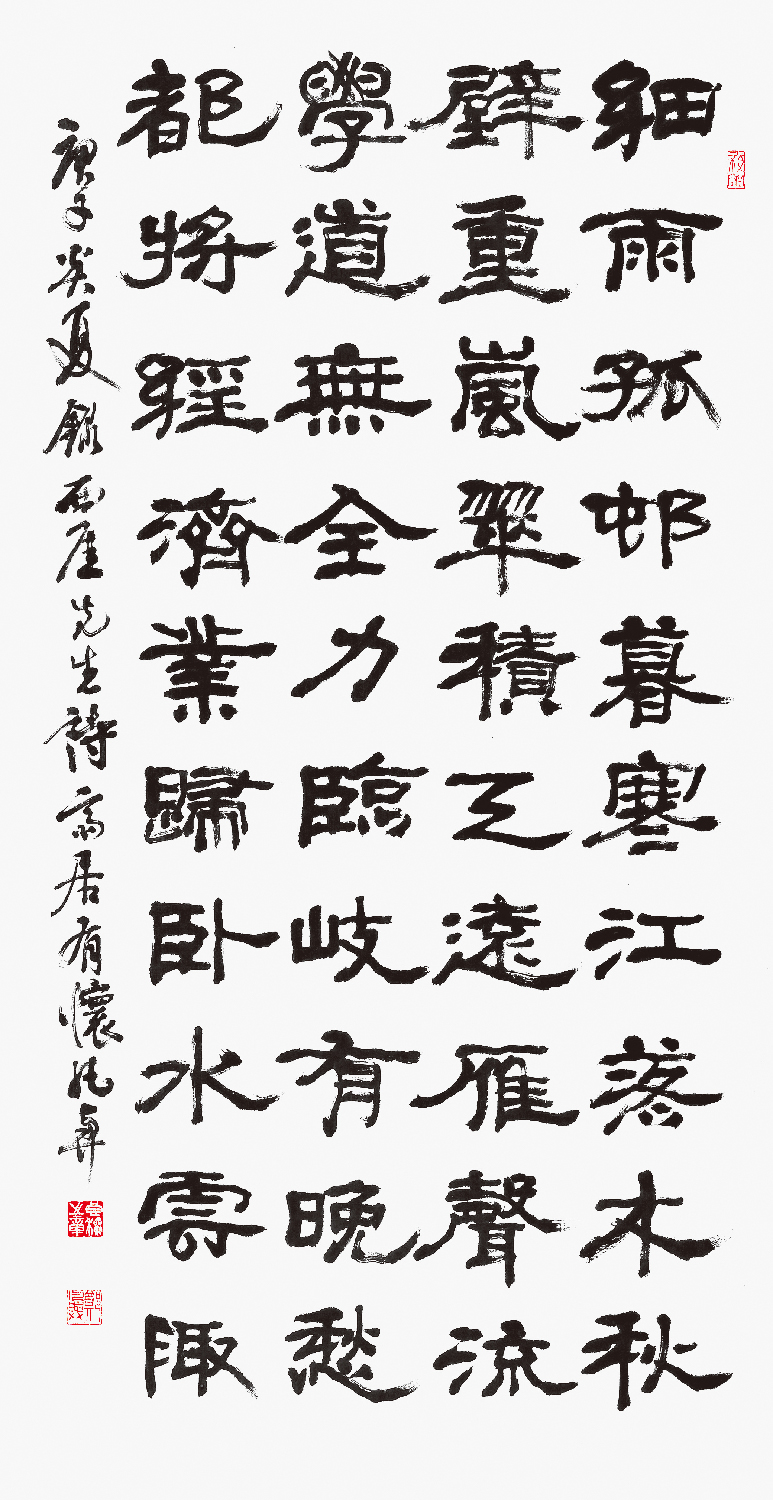 細雨孤邨暮寒江落木秋
壁重嵐翠積天遠雁聲流
學道無全力臨岐有晚愁
都將經濟業歸卧水雲陬
庚子炎夏錄西厓先生詩齋居有懷